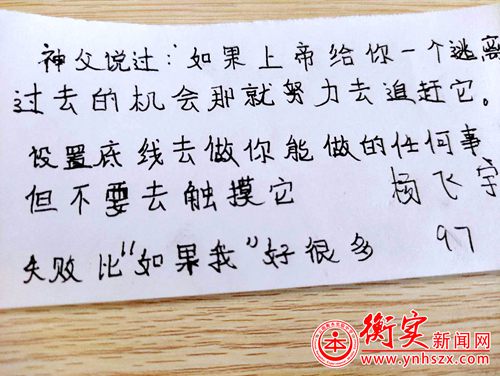 神父说过:"如果上帝给你一个逃离
过去的机会那就努力去追赶它。
设置底线去做你能做的任何事
但不要去触摸它 杨飞宇
失败比"如果我"好很多 97
衡实新闻网
www.ynhszx.com